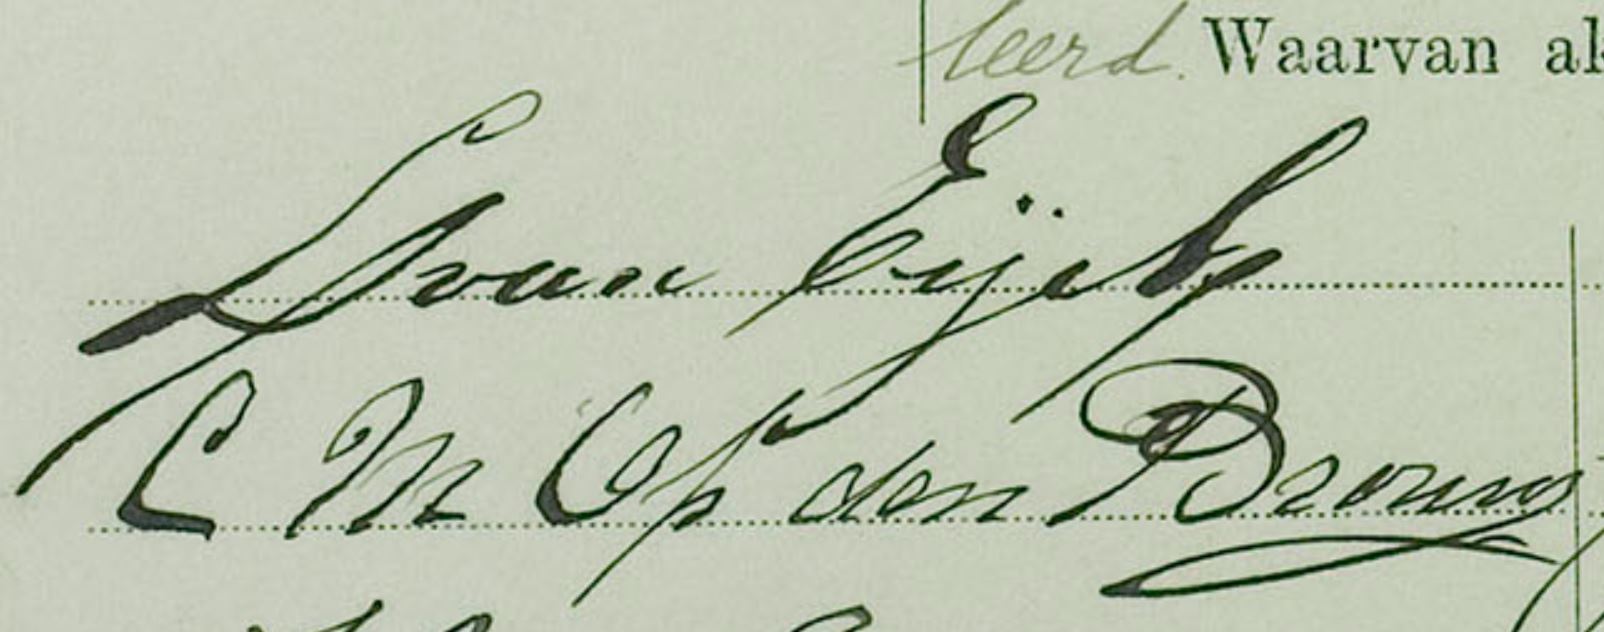 leerd. Waarvan ak
L van Eijck
C M Op den Brouw